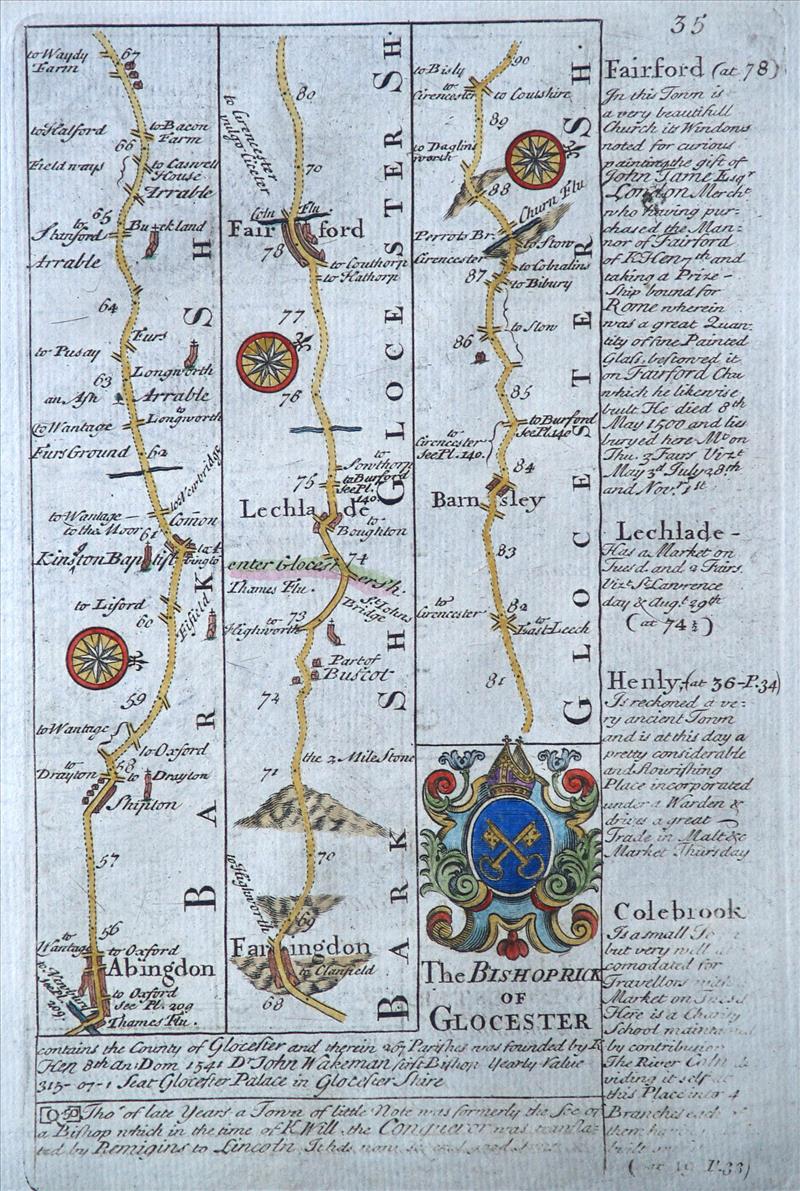 35
to Waydy
Farm
67
to Hatford
to Bacon
Farm
66
Field ways
to Caswell
House
Arrable
65
to
Stanford
Buckland
Arrable
64
Furs
to Pusay
Longworth
63
an Ash
Arrable
to
Longworth
to Wantage
Furs Ground
62
to Newbridge
to Wantage
to the Moor
Comon
61
Kinston Baptist
to Abington
to Liford
60
Fifield
59
to Wantage
to Oxford
to
Drayton
58
to Drayton
Shipton
57
56
to
Wantage
to Oxford
Abingdon
to Oxford
See Pl. 209
Thames Flu.
BARKSH
80
to Cirencester
vulgo Ciceter
79
Coln Flu.
Fairford
78
to Couthorp
to Hathorp
77
76
to
Sowthorp
75
to Burford
See Pl.
140
Lechlade
to
Boughton
74
enter Glocestersh.
Thames Flu.
St. Johns
Bridge
to
Highworth
73
Part of
Buscot
72
the 2 Mile Stone
71
70
to Highworth
69
Farringdon
to Clanfield
68
BARKSH
GLOCESTERSH.
90
to Bisly
to
Cirencester
to Coulshire
89
to Daglin
worth
88
Churn Flu
Perrots Br.
to Stow
Cirencester
to Colnalins
87
to Bibury
to Stow
86
85
to Burford
See Pl. 140
to
Cirencester
See Pl. 140.
84
Barnsley
83
to
Cirencester
82
to
East Leech
81
GLOCESTERSH.
The BISHOPRICK
OF
GLOCESTER
contains the County of Glocester and therein 267 Parishes was founded by K.
Hen 8th An: Dom 1541 Dr John Wakeman first Bishop Yearly Value
315-07-1 Seat Glocester Palace in Glocester Shire
Tho' of late Years a Town of little Note was formerly the See of
a Bishop which in the time of K. Will. the Conquerer was transla-
ted by Remigins to Lincoln
Fairford (at 78)
In this Town is
a very beautifull
Church its Windows
noted for curious
painting the gift of
John Tame Esqr
London Mercht
who having pur-
chased the Man-
nor of Fairford
of K. Hen 7th and
taking a Prize-
Ship bound for
Rome wherein
was a great Quan-
tity of fine Painted
Glass, bestowed it
on Fairford Chu
which he likewise
built He died 8th
May 1500 and lies
buryed here Mt on
Thu. 3 Fairs Vizt
May 3d July 28th
and Novr 1st
Lechlade-
Has a Market on
Tuesd. and 2 Fairs
Vizt St Lawrence
day & Augt 29th
(at 74½)
Henly (at 36-P.34)
Is reckoned a ve-
ry ancient Town
and is at this day a
pretty considerable
and flourishing
Place incorporated
under a Warden &
drives a great
Trade in Malt &c
Market Thursday
Colebrook
Is a small
but very well ac
comodated for
Travellors
Market on
Here is a Charity
School maintained
by contribution
The River Coln di
viding it self at
this Place into 4
Branches each of
them
built
(at 19 P.33)